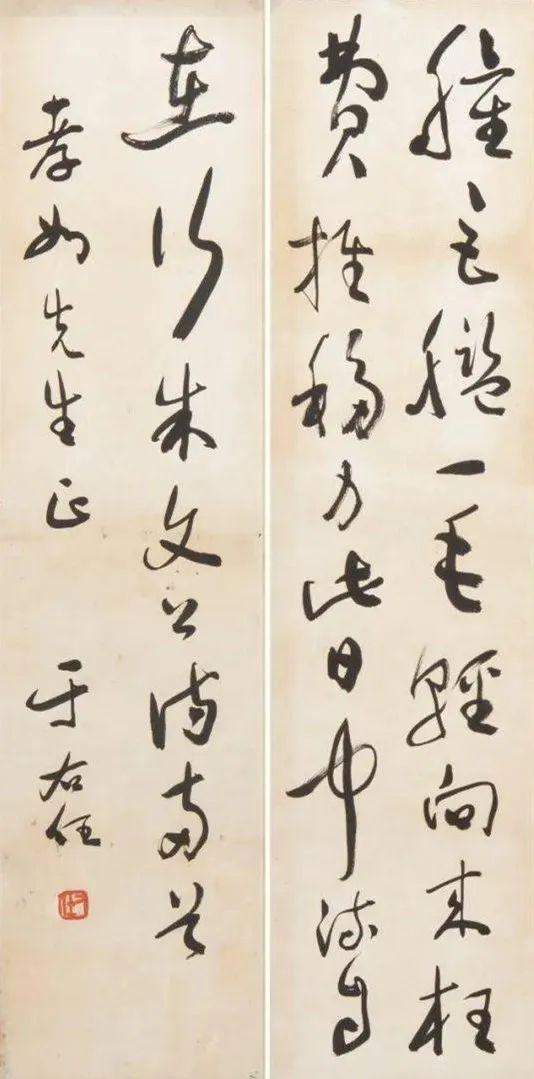 艟巨艦一毛輕向來枉
費推移力此日中流自
在行朱文公詩兩首
孝如先生正 于右任